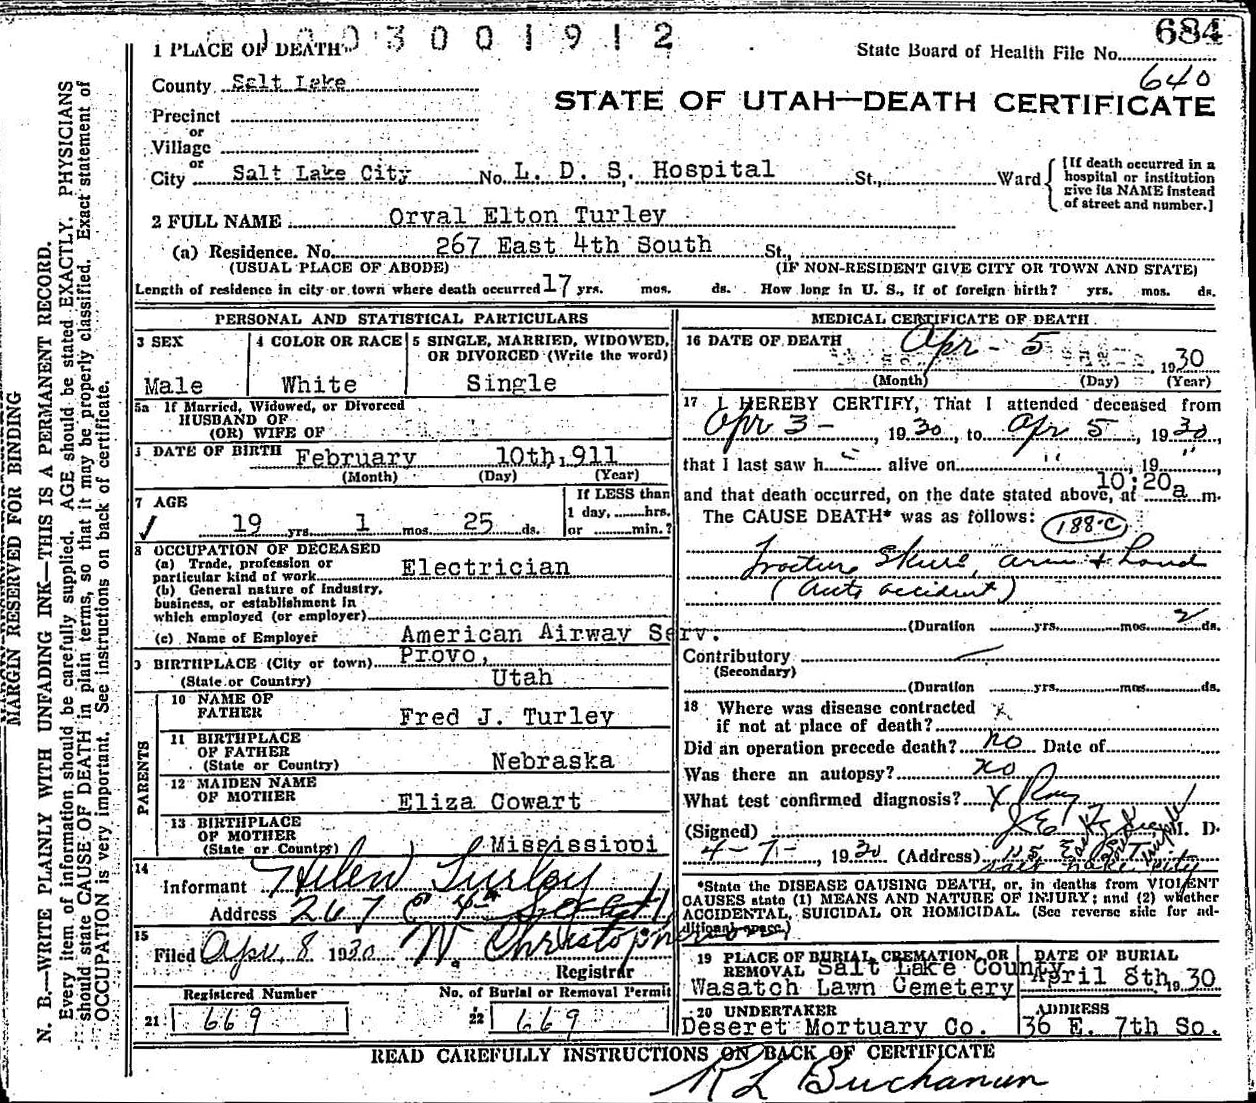 1003001912
684
1 PLACE OF DEATH
State Board of Health File No.
640
County Salt Lake
STATE OF UTAH—DEATH CERTIFICATE
Precinct
or
Village
or
City Salt Lake City No. L. D. S. Hospital St., Ward
[If death occurred in a
hospital or institution
give its NAME instead
of street and number.]
2 FULL NAME Orval Elton Turley
(a) Residence. No. 267 East 4th South St.,
(USUAL PLACE OF ABODE) (IF NON-RESIDENT GIVE CITY OR TOWN AND STATE)
Length of residence in city or town where death occurred 17 yrs. mos. ds. How long in U. S., if of foreign birth? yrs. mos. ds.
PERSONAL AND STATISTICAL PARTICULARS
3 SEX
Male
4 COLOR OR RACE
White
5 SINGLE, MARRIED, WIDOWED,
OR DIVORCED (Write the word)
Single
5a If Married, Widowed, or Divorced
HUSBAND OF
(OR) WIFE OF
DATE OF BIRTH February 10th, 911
(Month) (Day) (Year)
7 AGE
19 yrs. 1 mos. 25 ds.
If LESS than
1 day, hrs.
or min.?
8 OCCUPATION OF DECEASED
(a) Trade, profession or
particular kind of work Electrician
(b) General nature of Industry,
business, or establishment in
which employed (or employer)
(c) Name of Employer American Airway Serv.
9 BIRTHPLACE (City or town) Provo,
(State or Country) Utah
PARENTS
10 NAME OF
FATHER Fred J. Turley
11 BIRTHPLACE
OF FATHER
(State or Country) Nebraska
12 MAIDEN NAME
OF MOTHER Eliza Cowart
13 BIRTHPLACE
OF MOTHER
(State or Country) Mississippi
14
Informant Helen Turley
Address 267 E 4th South
15
Filed Apr. 8 1930
Registrar
Registered Number
21 669
No. of Burial or Removal Permit
22 669
MEDICAL CERTIFICATE OF DEATH
16 DATE OF DEATH Apr - 5 1930
(Month) (Day) (Year)
17 I HEREBY CERTIFY, That I attended deceased from
Apr 3 - , 1930, to Apr 5 , 1930,
that I last saw h alive on " , 19 " ,
and that death occurred, on the date stated above, at 10:20a m.
The CAUSE DEATH* was as follows: 188-c
Fracture Skull, arm + hand
(Auto accident)
(Duration yrs. mos. 2 ds.
Contributory —
(Secondary)
(Duration yrs. mos. ds.
18 Where was disease contracted
if not at place of death? x
Did an operation precede death? no Date of
Was there an autopsy? no
What test confirmed diagnosis? X Ray
(Signed) M. D.
4-7- , 1930 (Address)
*State the DISEASE CAUSING DEATH, or, in deaths from VIOLENT
CAUSES state (1) MEANS AND NATURE OF INJURY; and (2) whether
ACCIDENTAL, SUICIDAL OR HOMICIDAL. (See reverse side for ad-
ditional space.)
19 PLACE OF BURIAL, CREMATION, OR
REMOVAL Salt Lake County
Wasatch Lawn Cemetery
DATE OF BURIAL
April 8th, 1930
20 UNDERTAKER
Deseret Mortuary Co.
ADDRESS
36 E. 7th So.
READ CAREFULLY INSTRUCTIONS ON BACK OF CERTIFICATE
R L Buchanan
MARGIN RESERVED FOR BINDING
N. B.—WRITE PLAINLY WITH UNFADING INK—THIS IS A PERMANENT RECORD.
Every item of information should be carefully supplied. AGE should be stated EXACTLY. PHYSICIANS
should state CAUSE OF DEATH in plain terms, so that it may be properly classified. Exact statement of
OCCUPATION is very important. See instructions on back of certificate.